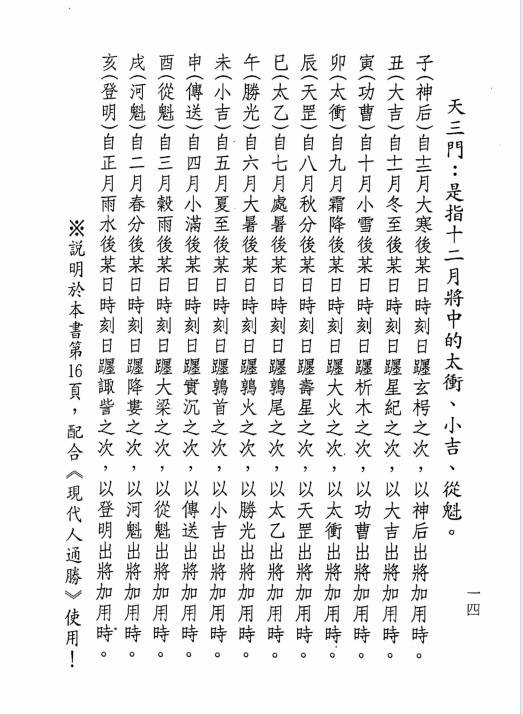 天三門：是指十二月將中的太衝、小吉、從魁。
子(神后)自十二月大寒後某日時刻日躔玄枵之次，以神后出將加用時。
丑(大吉)自十一月冬至後某日時刻日躔星紀之次，以大吉出將加用時。
寅(功曹)自十月小雪後某日時刻日躔析木之次，以功曹出將加用時。
卯(太衝)自九月霜降後某日時刻日躔大火之次，以太衝出將加用時。
辰(天罡)自八月秋分後某日時刻日躔壽星之次，以天罡出將加用時。
巳(太乙)自七月處暑後某日時刻日躔鶉尾之次，以太乙出將加用時。
午(勝光)自六月大暑後某日時刻日躔鶉火之次，以勝光出將加用時。
未(小吉)自五月夏至後某日時刻日躔鶉首之次，以小吉出將加用時。
申(傳送)自四月小滿後某日時刻日躔實沉之次，以傳送出將加用時。
酉(從魁)自三月穀雨後某日時刻日躔大梁之次，以從魁出將加用時。
戌(河魁)自二月春分後某日時刻日躔降婁之次，以河魁出將加用時。
亥(登明)自正月雨水後某日時刻日躔諏訾之次，以登明出將加用時。
※說明於本書第16頁，配合《現代人通勝》使用！
一四